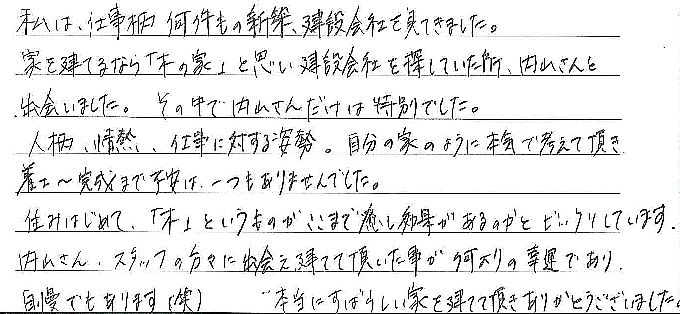 私は、仕事柄 何件もの新築、建設会社を見てきました。
家を建てるなら「木の家」と思い建設会社を探していた所、内山さんと
出会いました。 その中で内山さんだけは特別でした。
人柄、情熱、仕事に対する姿勢。自分の家のように本気で考えて頂き
着工〜完成まで不安は、一つもありませんでした。
住みはじめて、「木」というものがここまで癒し効果があるのかとビックリしています.
内山さん、スタッフの方々に出会え建てて頂いた事が何よりの幸運であり、
自慢でもあります(笑) 本当にすばらしい家を建てて頂きありがとうございました。